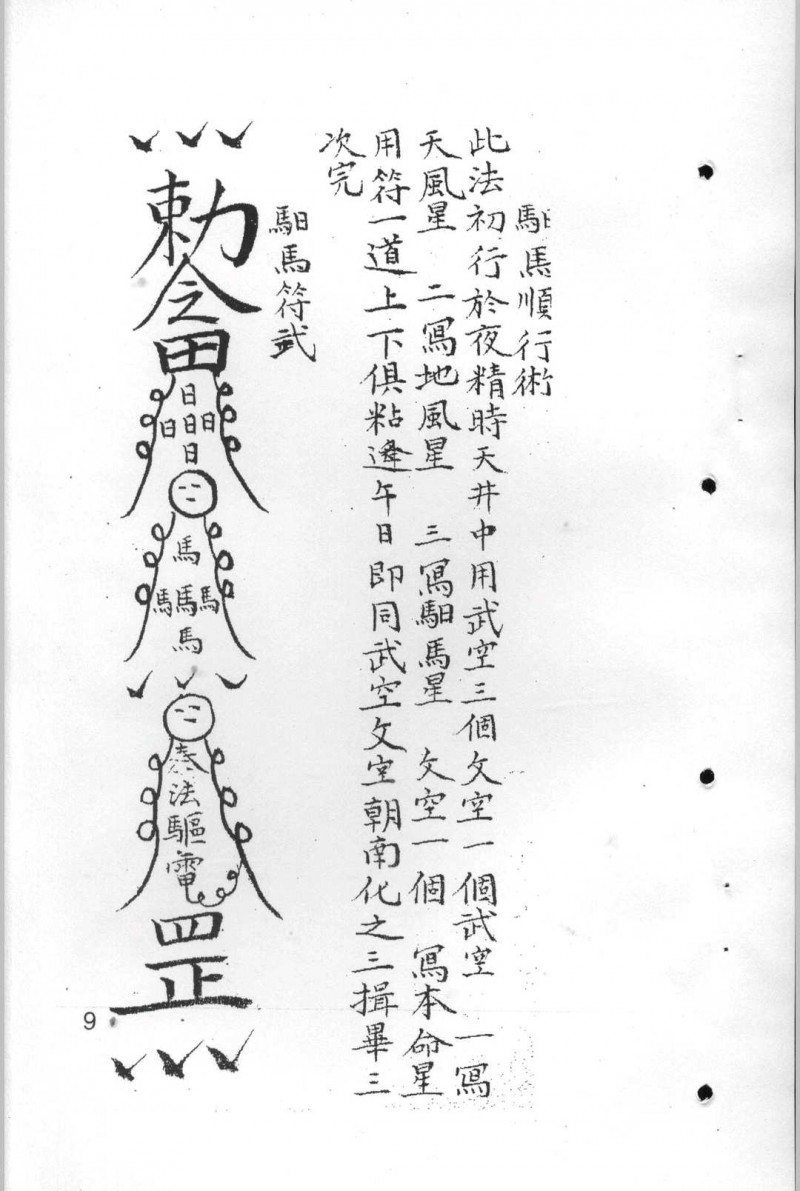 馹馬順行術
此法初行於夜精時天井中用武空三個文空一個武空 一寫
天風星 二寫地風星 三寫馹馬星 文空一個 寫本命星
用符一道上下俱粘逢午日即同武空文空朝南化之三揖畢三
次完
馹馬符式
勅令
田
日
日日日
日
馬
馬馬馬
馬
奉法驅雷
罡
9